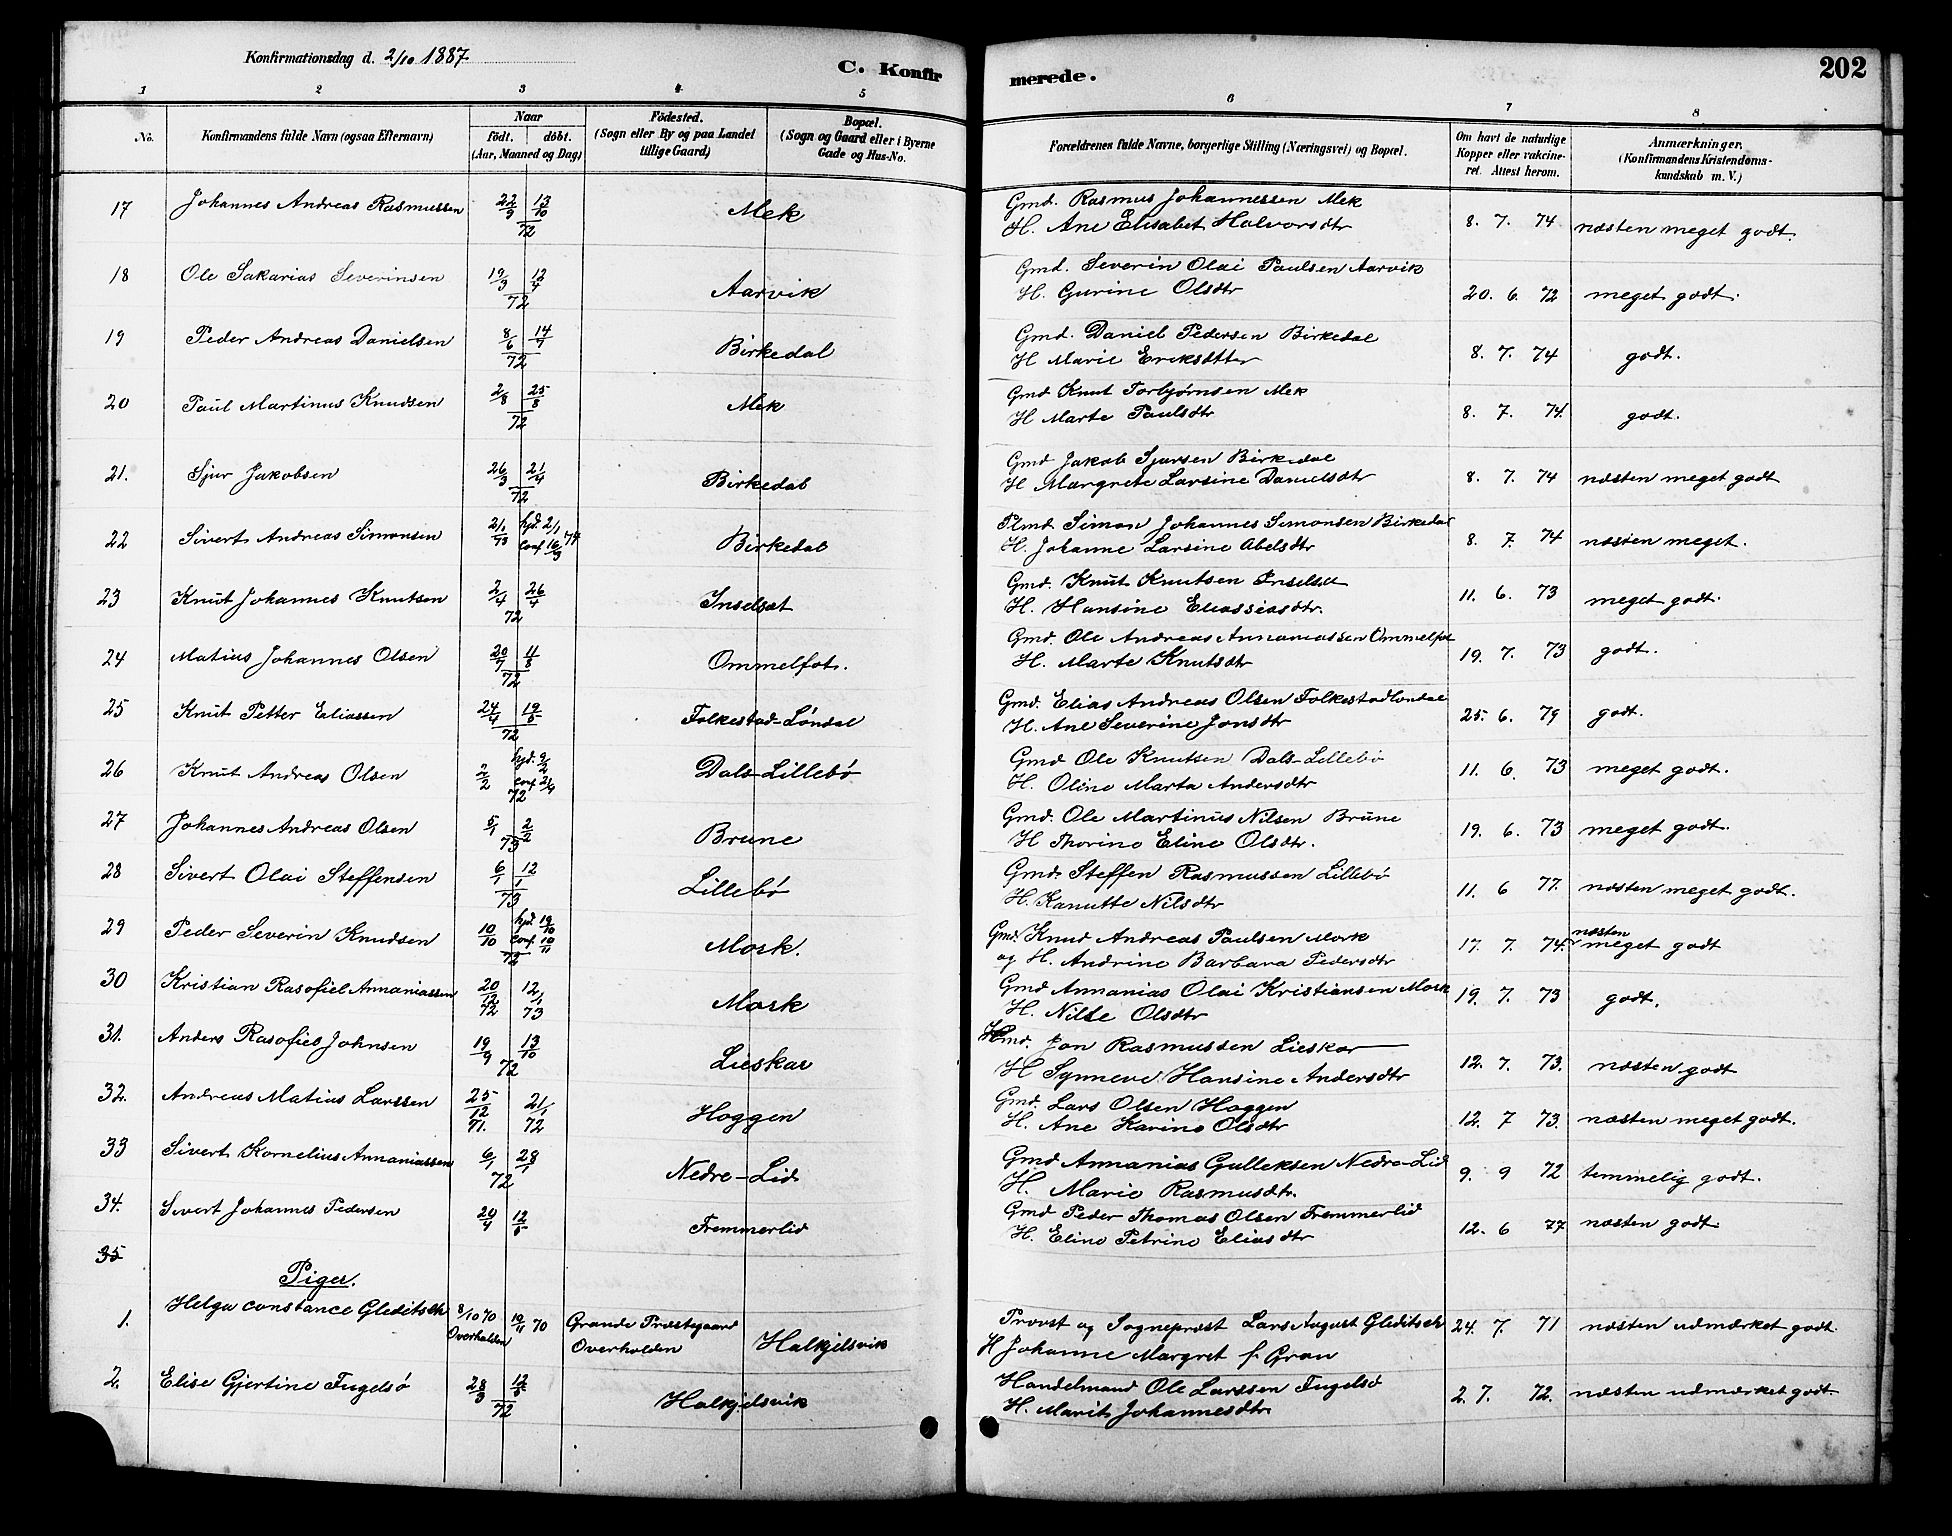 Konfirmationsdag d. 2/10 1887
C. Konfirmerede.
202
1 2 3 4 5 6 7 8
No.
Konfirmandens fulde Navn (ogsaa Efternavn)
Naar
födt. döbt.
(Aar, Maaned og Dag)
Födested.
(Sogn eller By og paa Landet tillige Gaard)
Bopæl.
(Sogn og Gaard eller i Byerne Gade og Hus-No.
Forældrenes fulde Navne, borgerlige Stilling (Næringsvei) og Bopæl.
Om havt de naturlige Kopper eller vakcineret. Attest herom.
Anmærkninger.
(Konfirmandens Kristendomskundskab m. V.)
17 Johannes Andreas Rasmussen 22/9 13/10 72 Mek Gmd. Rasmus Johannessen Mek 8. 7. 74 næsten meget godt.
H. Ane Elisabet Halvorsdtr
18 Ole Sakarias Severinsen 19/3 12/4 72 Aarvik Gmd. Severin Olai Paulsen Aarvik 20. 6. 72 meget godt.
H. Gurine Olsdtr
19 Peder Andreas Danielsen 8/6 14/7 72 Birkedal Gmd. Daniel Pedersen Birkedal 8. 7. 74 godt.
H Marie Eriksdtter
20 Paul Martinus Knudsen 2/8 25/8 72 Mek Gmd Knut Torbjørnsen Mek 8. 7. 74. godt.
H Marte Paulsdtr
21. Sjur Jakobsen 26/3 21/4 72 Birkedal Gmd Jakob Sjursen Birkedal 8. 7. 74 næsten meget godt
H Margrete Larsine Danielsdtr
22 Sivert Andreas Simonsen hjd. 2/1 conf 16/3 74 Birkedal Plmd Simon Johannes Simonsen Birkedal 8. 7. 74 næsten meget.
H. Johanne Larsine Abelsdtr
23 Knut Johannes Knutsen 2/4 26/4 72 Inselset Gmd. Knut Knutsen Inselset 11. 6. 73 meget godt.
H. Hansine Eliassiasdtr.
24 Matius Johannes Olsen 20/7 11/8 72 Ommelfot. Gmd. Ole Andreas Annaniassen Ommelfot 19. 7. 73 godt.
H. Marte Knutsdtr
25 Knut Petter Eliassen 24/4 19/5 72 Folkestad-Løndal Gmd. Elias Andreas Olsen Folkestadløndal 25. 6. 79 godt.
H. Ane Severine Jonsdtr
26 Knut Andreas Olsen 2/2 hjd. 9/2 conf 21/4 72 Dals-Lillebø Gmd Ole Knutsen Dals-Lillebø 11. 6. 73 meget godt.
H. Oline Marta Andersdtr
27 Johannes Andreas Olsen 5/1 2/2 73 Brune Gmd. Ole Martinus Nilsen Brune 19. 6. 73 meget godt.
H Thorine Eline Olsdtr.
28 Sivert Olai Steffensen 6/1 12/1 73 Lillebø Gmd. Steffen Rasmussen Lillebø 11. 6 77. næsten meget godt.
H. Kanutte Nilsdtr
29 Peder Severin Knudsen 10/10 hjd 19/10 conf 10/11 72 Mork. Gmd. Knud Andreas Paulsen Mork 17. 7. 74. næsten meget godt
og H. Andrine Barbara Pedersdtr
30 Kristian Rasofiel Annaniassen 20/12 72 12/1 73 Mork Gmd Annanias Olai Kristiansen Mork 19. 7. 73 godt.
H. Nille Olsdtr
31. Anders Rasofiel Johnsen 19/9 13/10 72 Lieskar Jon Rasmussen Lieskar 12. 7. 73. næsten godt
H Synneve Hansine Andersdtr
32. Andreas Matius Larssen 25/12 71. 21/1 72 Hoggen Gmd. Lars Olsen Hoggen 12. 7 73. næsten meget godt.
H. Ane Karine Olsdtr
33 Sivert Kornelius Annaniassen 6/1 28/1 72 Nedre-Lid Gmd Annanias Gulleksen Nedre-Lid 9. 9 72 temmelig godt.
H. Marie Rasmusdtr.
34. Sivert Johannes Pedersen 20/4 12/5 Fremmerlid Gmd Peder Thomas Olsen Fremmerlid 12. 6 77 næsten godt.
H. Eline Petrine Eliasdtr
35
Piger.
1. Helga Constance Gleditsch 8/10 70 Overhalden 19/11 70 Grande Præstegaard Overhalden Halkjelsvik Provst og Sogneprest Lars August Gleditsch 24. 7. 71 næsten udmærket godt
H Johanne Margret f. Gran
2. Elise Gjertine Fugelsø 28/3 12/5 72 Halkjelsvik Handelmand Ole Larssen Fugelsø 2. 7. 72. næsten udmærket godt
H. Marit Johannesdtr.